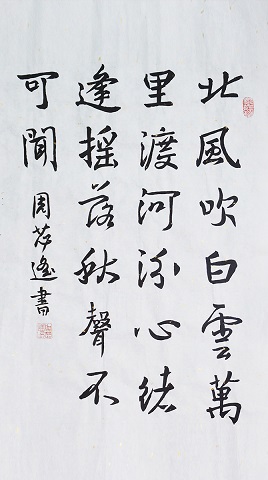 北風吹白雲萬
里渡河汾心緒
逢摇落秋聲不
可聞
周遙書